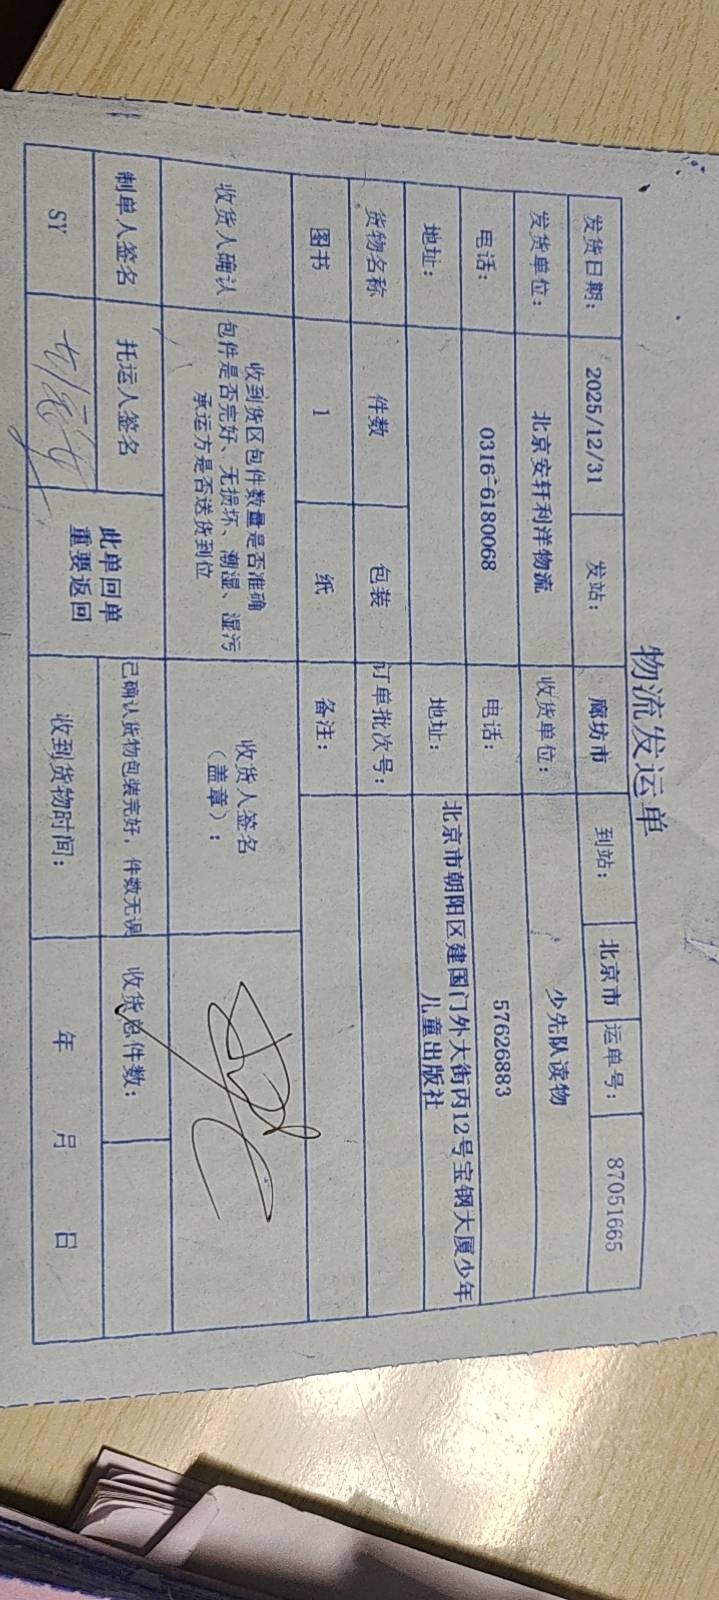 物流发运单
发货日期: 2025/12/31 发站: 廊坊市 到站: 北京市 运单号: 87051665
发货单位: 北京安轩利洋物流 收货单位: 少先队读物
电话: 0316-6180068 电话: 57626883
地址: 地址: 北京市朝阳区建国门外大街丙12号宝钢大厦少年
儿童出版社
货物名称 件数 包装 订单批次号:
图书 1 纸 备注:
收货人确认
收到货区包件数量是否准确
包件是否完好、无损坏、潮湿、湿污
承运方是否送货到位
收货人签名
(盖章):
制单人签名 托运人签名
此单回单
重要返回
已确认货物包装完好，件数无误 收货总件数:
SY 收到货物时间: 年 月 日